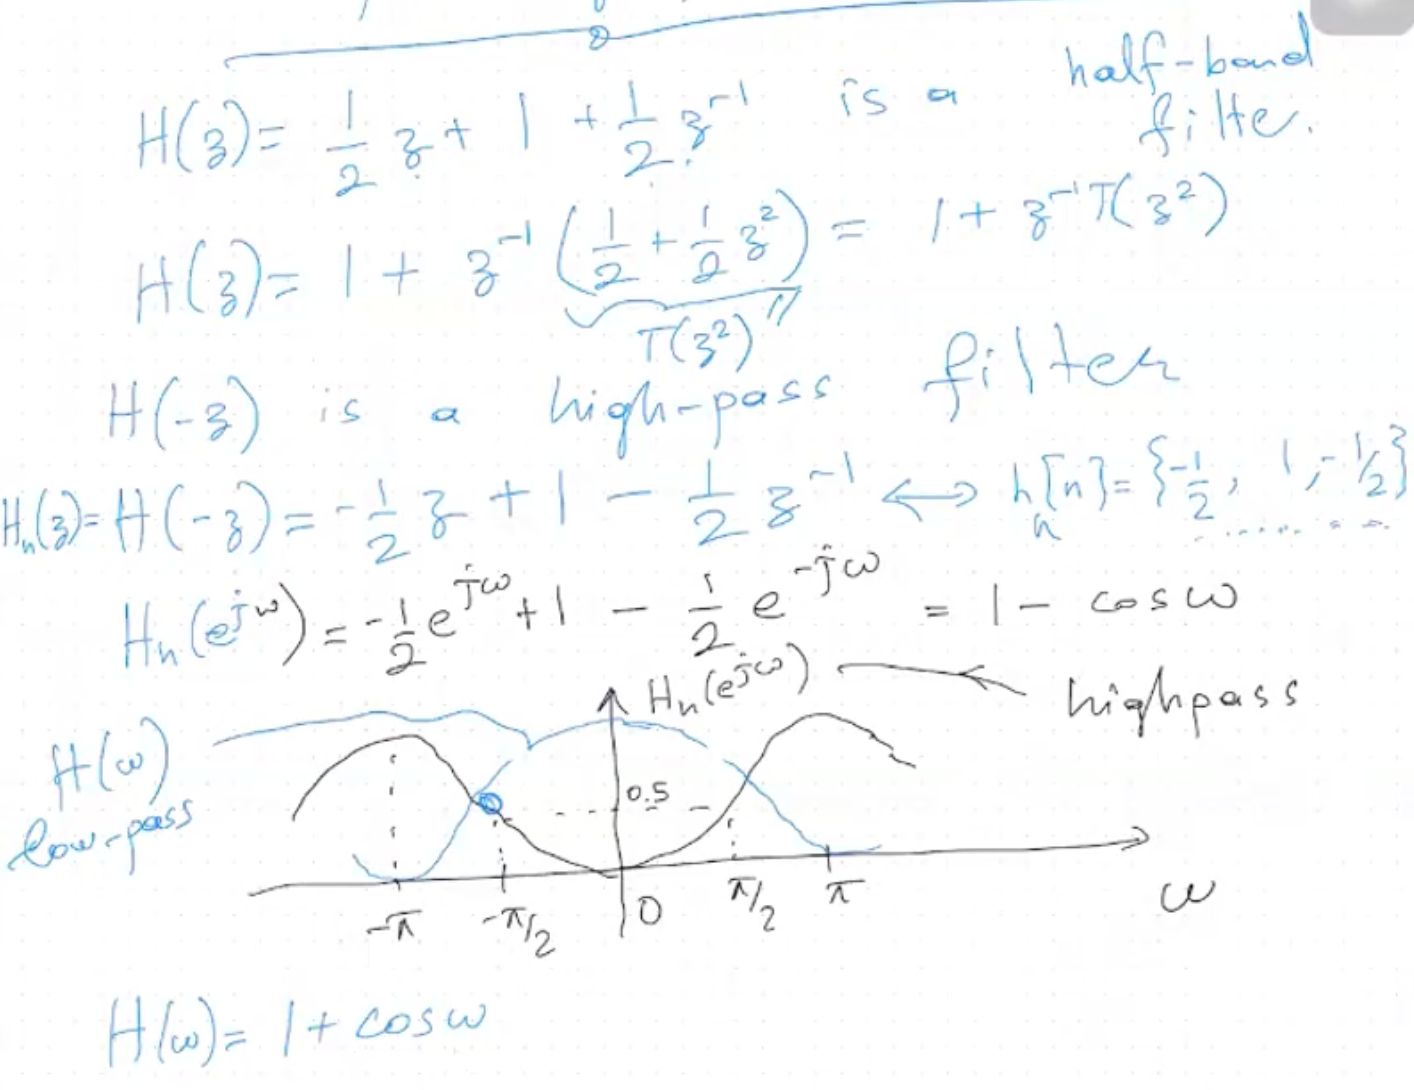 H(z)= 1/2 z + 1 + 1/2 z^-1 is a half-band
filte.
H(z)= 1 + z^-1 (1/2 + 1/2 z^2) = 1 + z^-1 T(z^2)
T(z^2)
H(-z) is a high-pass filter
H_h(z)= H(-z) = -1/2 z + 1 - 1/2 z^-1 ↔ h_h[n]= {-1/2, 1, -1/2}
H_h(e^jω) = -1/2 e^jω + 1 - 1/2 e^-jω = 1 - cosω
H_h(e^jω) ← highpass
H(ω)
low-pass
0.5
-π -π/2 0 π/2 π ω
H(ω)= 1+ cosω